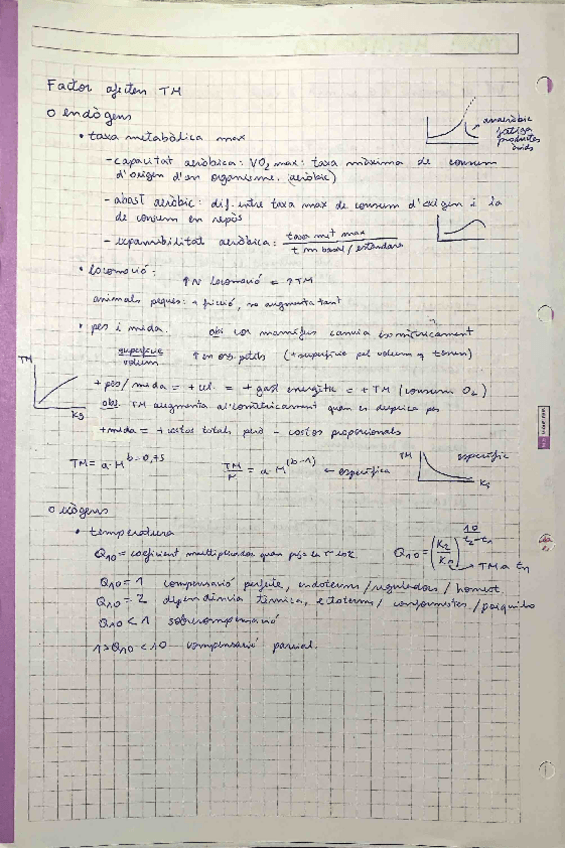 Factor afecten TM
O endògens
• taxa metabòlica max
anaeròbic
fatiga
productes
àcids
- capacitat aeròbica: VO2 max: taxa màxima de consum
d'oxigen d'un organisme. (aeròbic)
- abast aeròbic: dif. entre taxa max de consum d'oxigen i la
de consum en repòs
- expansibilitat aeròbica: taxa met max
t m basal / estàndard
• locomoció:
↑ locomoció = ↑TM
animals peixos: + fricció, no augmenta tant
• pes i mida. cor mamífers canvia isomètricament
superfície
volum
↑ en org. petits (+ superfície pel volum q tenen)
TM
Kg
+ pes/mida = + cel. = + gast energètic = + TM (consum O2)
obs. TM augmenta al·lomètricament quan es duplica pes
+ mida = + costos totals però - costos proporcionals
TM = a·M^b=0,75
TM/M = a·M^(b-1) ← específica
TM
específica
Kg
O exògens
• temperatura
Q10 = coeficient multiplicador quan puja la Tª 10ºC
Q10 = (K2/K1)^10/t2-t1
→ TM a t1
Q10 = 1 compensació perfecte, endoterms / reguladors / homeot.
Q10 = 2 dependència tèrmica, ectoterms / conformistes / poiquilo
Q10 < 1 sobrecompensació
1 > Q10 < 10 compensació parcial.